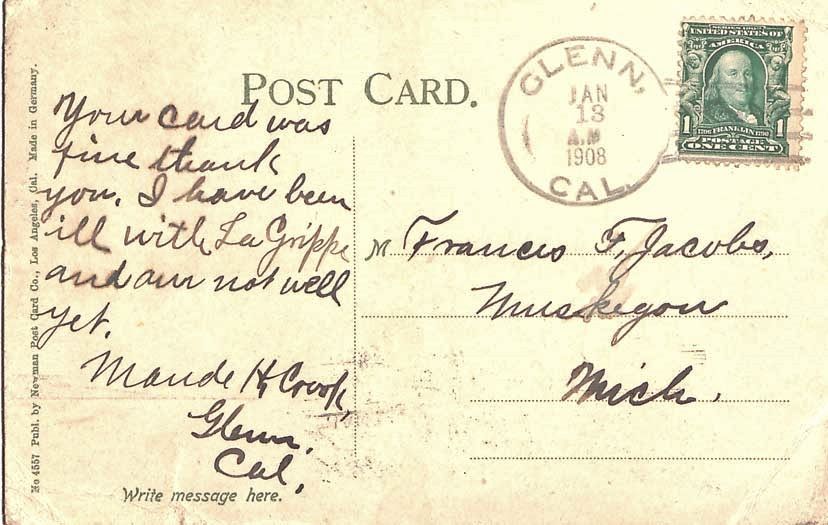 POST CARD.
GLENN,
JAN
13
A.M
1908
CAL.
SERIES 1902
UNITED STATES OF
AMERICA
1 1706 FRANKLIN 1790 1
POSTAGE
ONE CENT
Your card was
fine thank
you. I have been
ill with La Grippe
and am not well
yet.
Maude H. Crook,
Glenn,
Cal.
Write message here.
M Francis F. Jacobs,
Muskegon
Mich.
No 4557 Publ. by Newman Post Card Co., Los Angeles, Cal. Made in Germany.